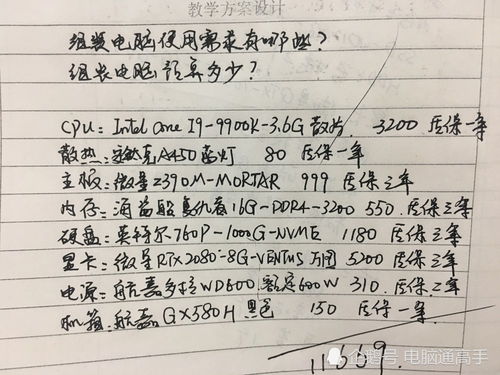 教学方案设计
组装电脑使用需求有哪些?
组装电脑预算多少?
CPU: Intel Core I9-9900K-3.6G 散片 3200 质保一年
散热: A450蓝灯 80 质保一年
主板: 微星Z390M-MORTAR 999 质保三年
内存: 海盗船复仇者16G-DDR4-3200 550. 质保三年
硬盘: 英特尔-760P-1000G-NVME 1180 质保三年
显卡: 微星RTX2080-8G-VENTUS 万图 5200 质保三年
电源: 航嘉多核WD600. 额定600W 310. 质保三年
机箱: 航嘉GX580H 黑色 150 质保一年.
11669.
企鹅号 电脑通高手